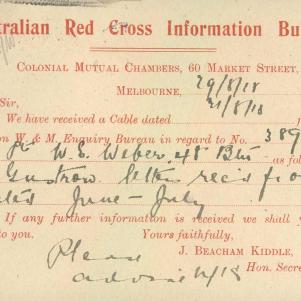 tralian Red Cross Information Bu
Colonial Mutual Chambers, 60 Market Street,
Melbourne, 29/8/18
Sir,
We have received a Cable dated 21/8/18 1
on W. & M. Enquiry Bureau in regard to No. 389
Pte W. S. Weber. 48 Btn as fol
Gustrow. letter rec'd fro
dated June - July
If any further information is received we shall y
to you. Yours faithfully,
J. Beacham Kiddle,
Hon. Secre
Please
advise